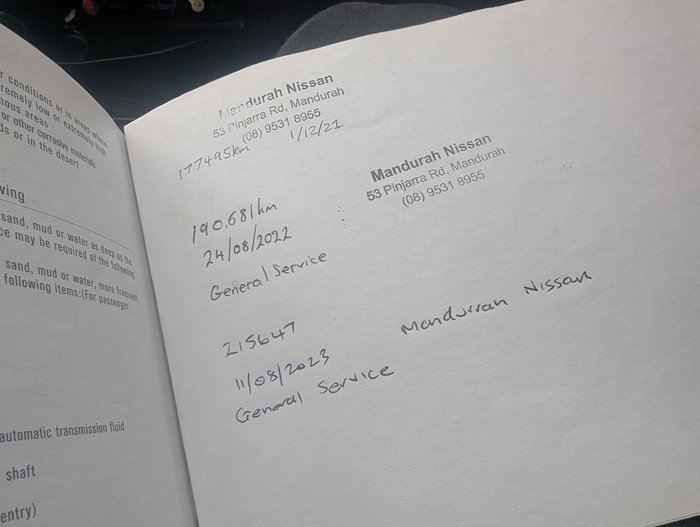 r conditions or in areas where
remely low or extremely high
nous areas
or other corrosive materials
ds or in the desert
ving
sand, mud or water as deep as the
ce may be required of the following
sand, mud or water, more frequent
following items:(For passenger
automatic transmission fluid
shaft
entry)
Mandurah Nissan
53 Pinjarra Rd, Mandurah
(08) 9531 8955
177495km 1/12/21
Mandurah Nissan
53 Pinjarra Rd, Mandurah
(08) 9531 8955
190,681km
24/08/2022
General Service
215647
11/08/2023 Mandurrah Nissan
General Service